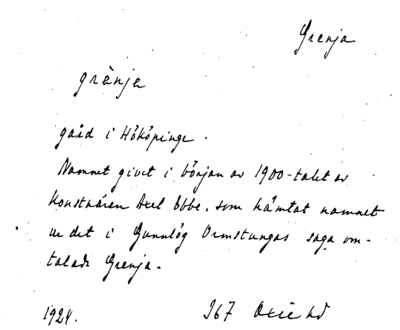 Grenja
grànje
gård i Hököpinge.
Namnet givet i början av 1900-talet av
konstnären Axel Ebbe, som hämtat namnet
ur det i Gunnlög Ormstungas saga om-
talade Grenja.
1924. 367 Oxie hd